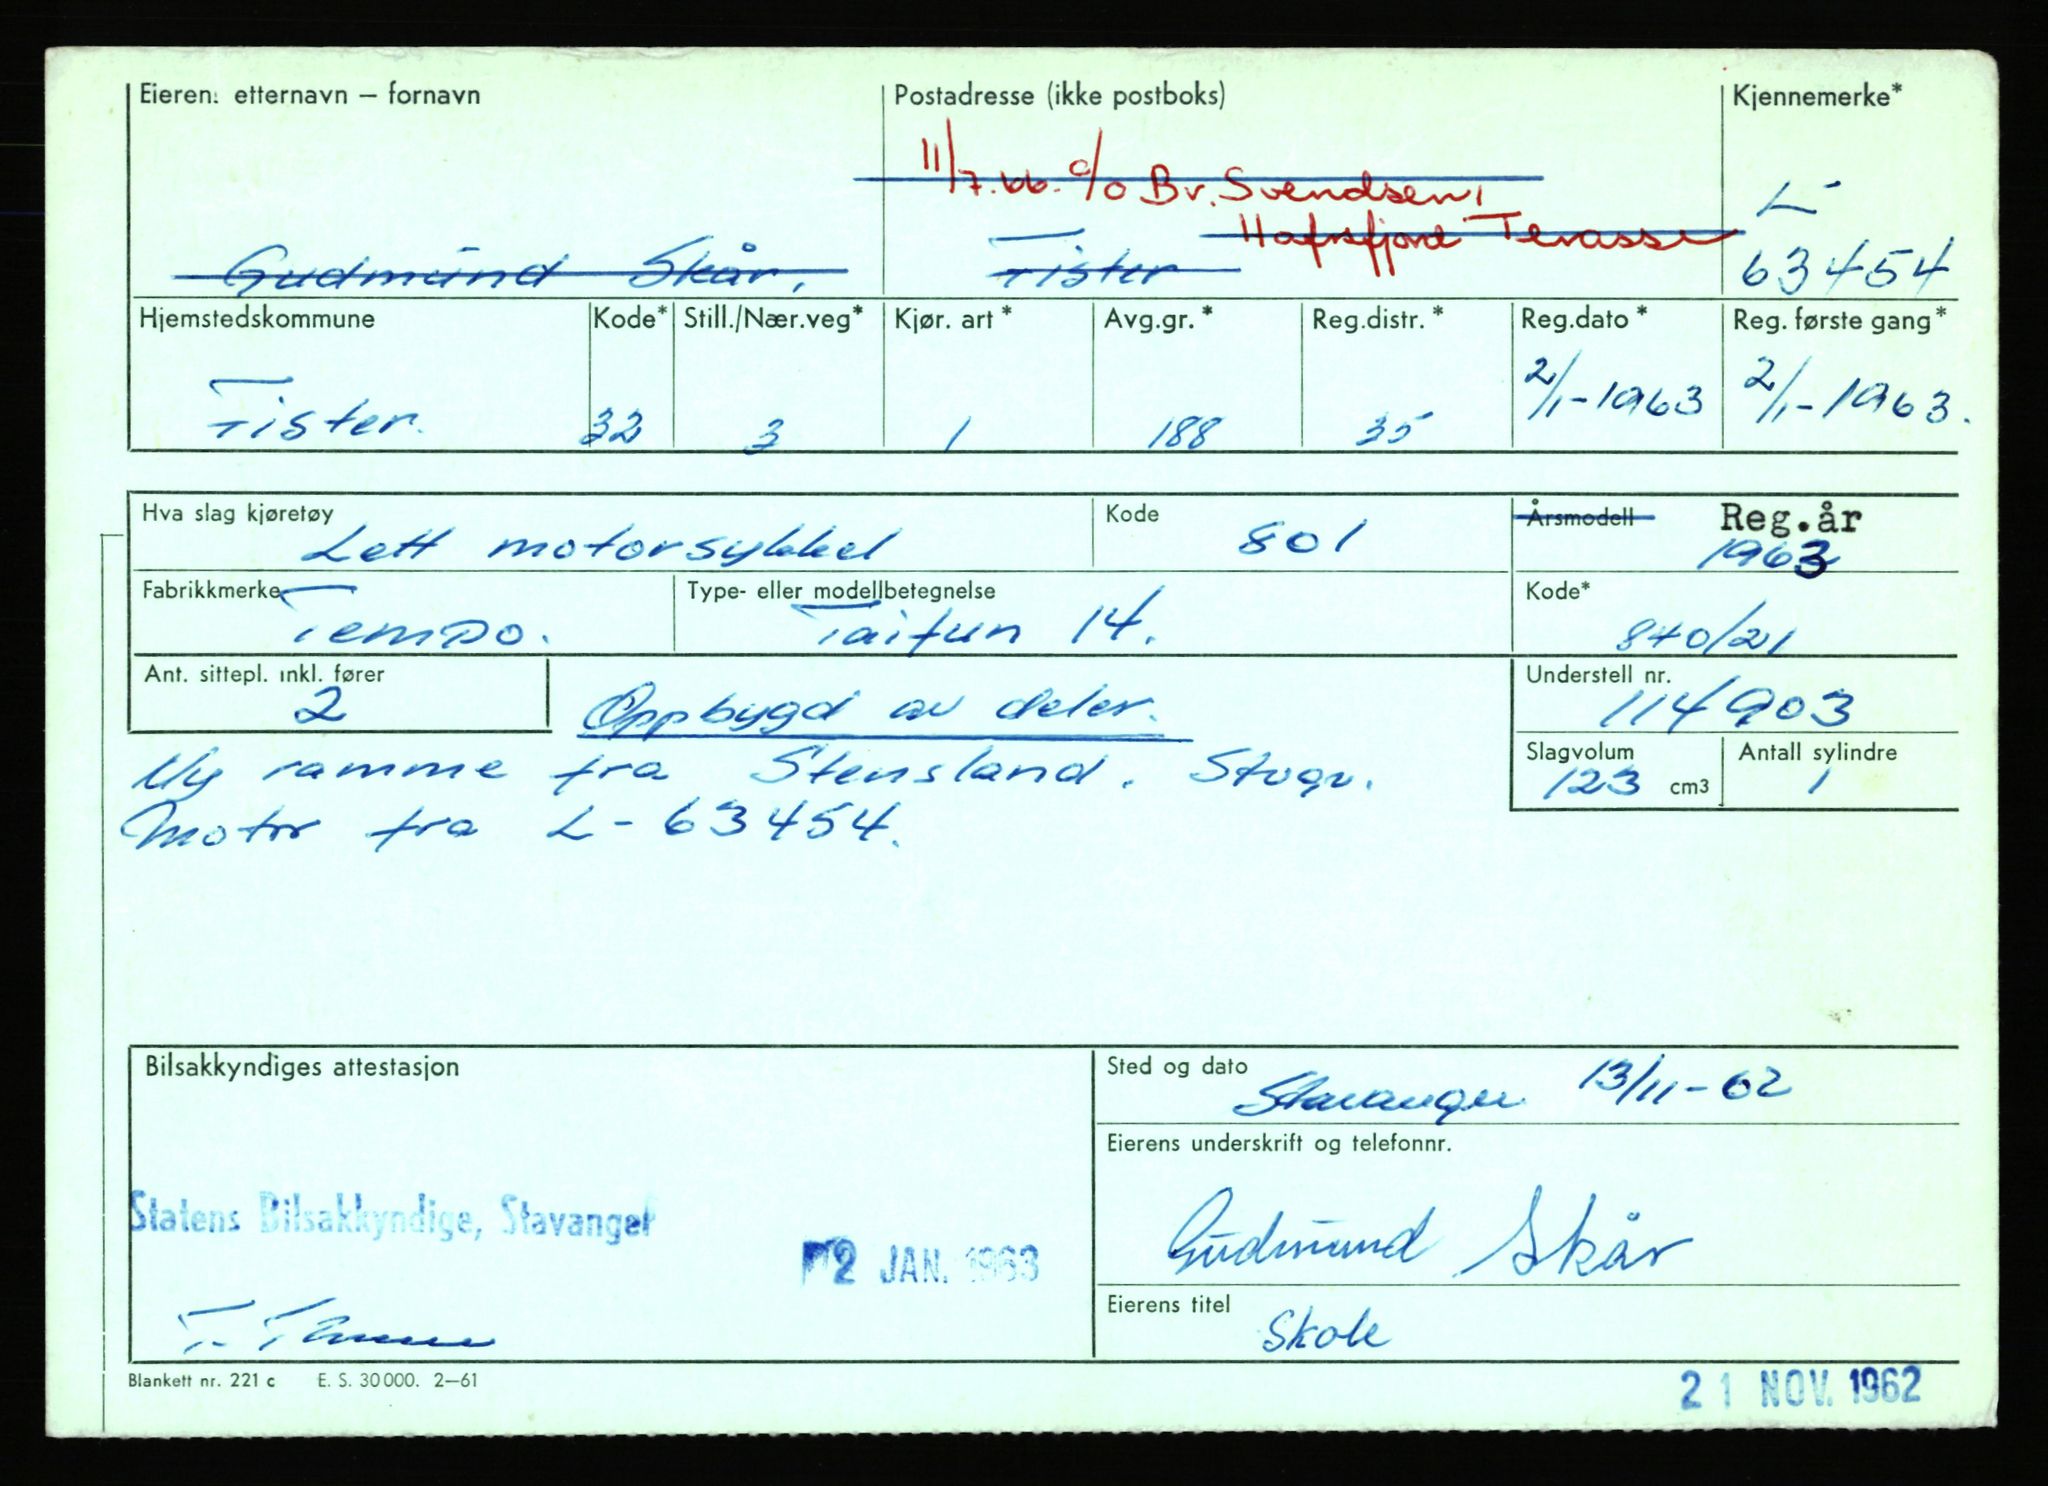 Eieren: etternavn – fornavn Postadresse (ikke postboks) Kjennemerke*
11/7.66. c/o Br. Svendsen,
Hafrsfjord Terasse
L-
Gudmund Skår. Fister 63454
Hjemstedskommune Kode* Still./Nær.veg* Kjør. art* Avg.gr.* Reg.distr.* Reg.dato* Reg. første gang*
Fister. 32 3 1 188 35 2/1-1963 2/1-1963.
Hva slag kjøretøy Lett motorsykkel Kode 801 Årsmodell Reg.år 1963
Fabrikkmerke Tempo. Type- eller modellbetegnelse Taifun 14. Kode* 840/21
Ant. sittepl. inkl. fører 2 Oppbygd av deler. Understell nr. 114903
Ny ramme fra Stensland. Stvgr. Slagvolum 123 cm3 Antall sylindre 1
Motor fra L-63454.
Bilsakkyndiges attestasjon Sted og dato Stavanger 13/11-62
Eierens underskrift og telefonnr.
Statens Bilsakkyndige, Stavanger Gudmund Skår
2 JAN. 1963
Eierens titel Skole
Blankett nr. 221 c E. S. 30000. 2–61 21 NOV. 1962